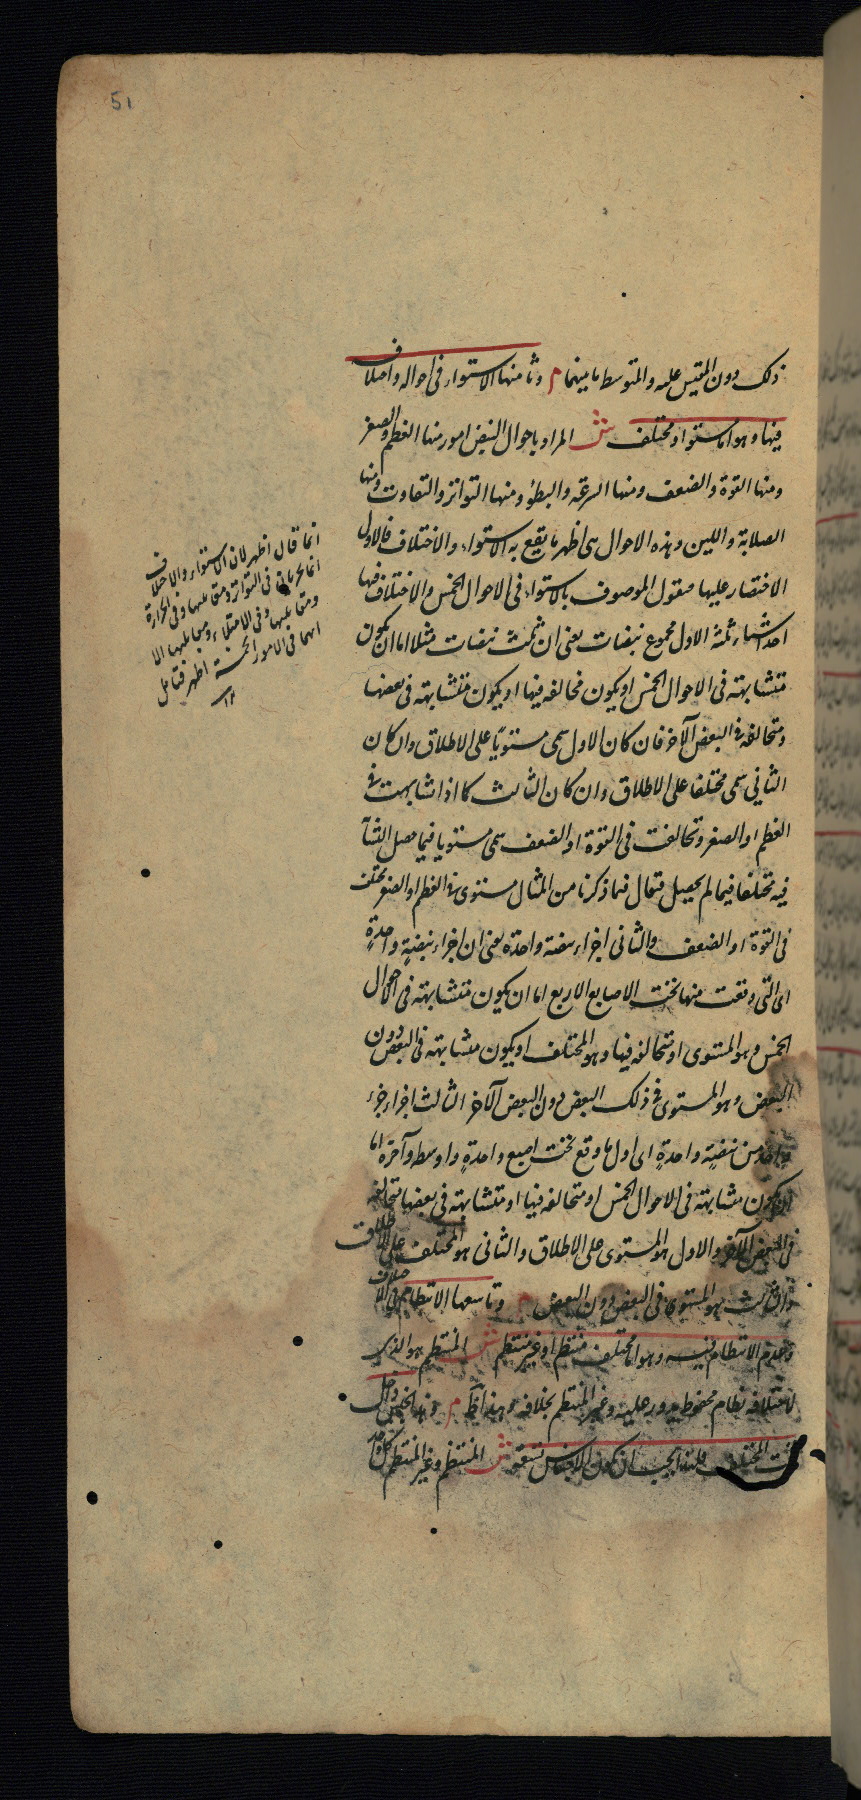 51
ذلك دون المقيس عليه والمتوسط ما بينهما م وثامنها الاستواء فى احواله واختلاف
فيها وهو اما مستو او مختلف ش المراد باحوال النبض امور منها العظم والصغر
ومنها القوة والضعف ومنها السرعة والبطؤ ومنها التواتر والتفاوت ومنها
الصلابة واللين وهذه الاحوال هى اظهر ما يقع به الاستواء والاختلاف فالاولى
الاختصار عليها فنقول الموصوف بالاستواء فى الاحوال الخمس والاختلاف فيها
احد اشياء ثلثة الاول مجموع نبضات يعنى ان ثلث نبضات مثلا اما ان يكون
متشابهته فى الاحوال الخمس او يكون مخالفه فيها او يكون متشابهته فى بعضها
ومتخالفه فى البعض الآخر فان كان الاول سمى مستويا على الاطلاق وان كان
الثانى سمى مختلفا على الاطلاق وان كان الثالث كما اذا تشابهت فى
العظم او الصغر وتخالفت فى القوة او الضعف سمى مستويا فيما حصل التشا
فيه مختلفا فيما لم يحصل فيقال فيما ذكرنا من المثال مستوى فى العظم او الصغر مختلف
فى القوة او الضعف والثانى اجزاء نبضة واحدة يعنى ان اجزاء نبضة واحدة
اى التى وقعت منها تحت الاصابع الاربع اما ان يكون متشابهته فى الاحوال
الخمس وهو المستوى او متخالفه فيها وهو المختلف او يكون متشابهته فى البعض دون
البعض وهو المستوى فى ذلك البعض دون البعض الآخر الثالث اجزاء جزء
واحد من نبضة واحدة اى اول ما وقع تحت اصبع واحدة واوسطه وآخره اما
ان يكون متشابهته فى الاحوال الخمس او متخالفه فيها او متشابهته فى بعضها متخالفه
فى البعض الآخر والاول هو المستوى على الاطلاق والثانى هو المختلف على الاطلاق
والثالث هو المستوى فى البعض دون البعض م وتاسعها الانتظام فى الاختلاف
وعدم الانتظام فيه وهو اما مختلف منتظم او غير منتظم ش المنتظم هو الذى
لاختلافه نظام محفوظ يدور عليه وغير المنتظم بخلافه وهذا م وهذا الجنس داخل
تحت المختلف فلهذا يجب ان يكون الاجناس تسعة ش المنتظم وغير المنتظم
انما قال اظهر لان الاستواء والاختلاف
انما يجريان فى التواتر ومقابلها وفى الحرارة
ومقابلها وفى الامتلاء ومقابلها الا
انهما فى الامور الخمسة اظهر فتامل
١٢